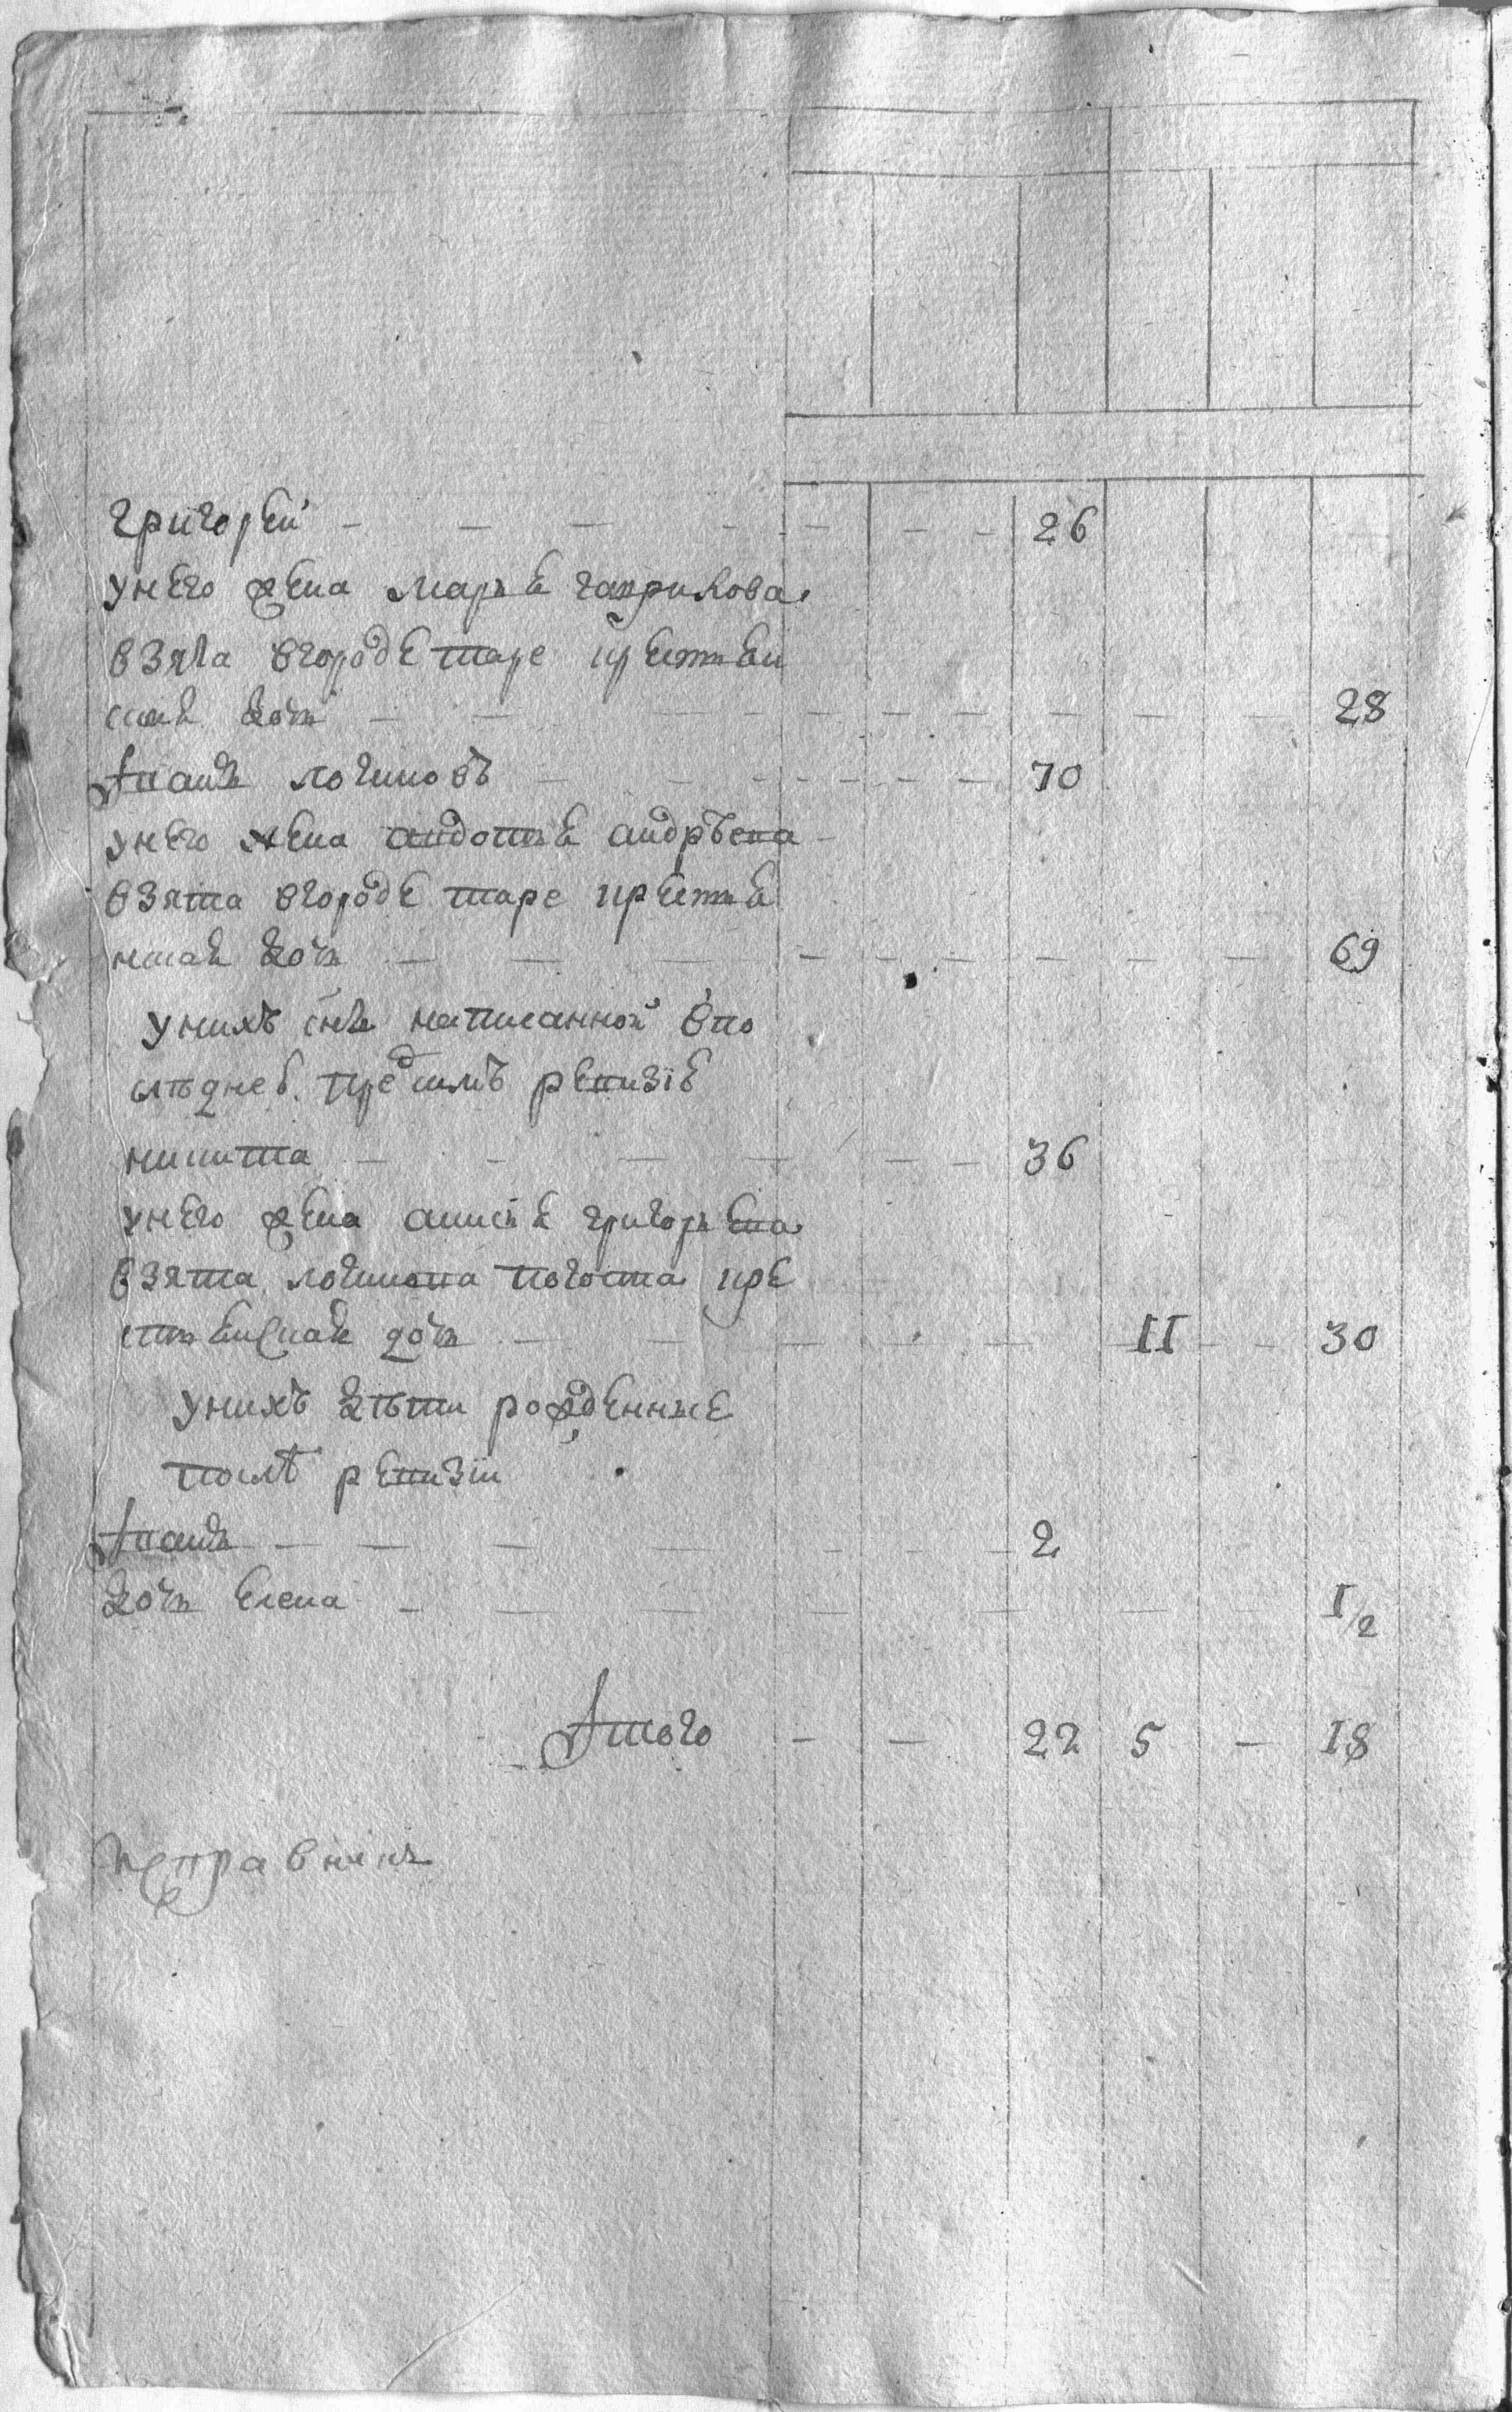 Григорей — — — — — — — 26
у него жена марья гаврилова
взята вгороде таре крестьян
ская дочь — — — — — — — 28
Іванъ логиновъ — — — — — 70
у него жена авдотья андрѣева
взята вгороде таре крестья
нская дочь — — — — — — — 69
у нихъ снъ написанной впо
слѣдней пред симъ ревизіе
никита — — — — — — 36
у него жена анисья григорьева
взята логинова погоста кре
стьенская дочь — — — — II — — 30
у нихъ дѣти рожденные
послѣ ревизіи
Іванъ — — — — — — — 2
дочь елена — — — — — — — I/2
Ітого — — 22 5 — I8
исправникъ